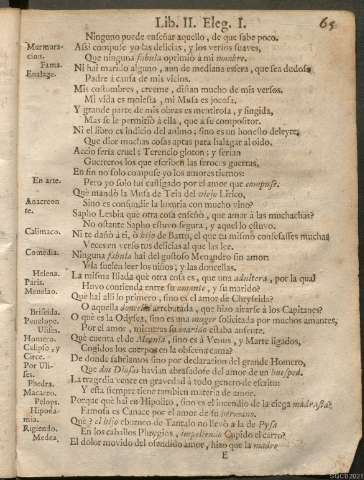 Lib. II. Eleg. I. 65
Ninguno puede enseñar aquello, de que sabe poco.
Murmuracion. Assi compuse yo las delicias, y los versos suaves,
Fama. Que ninguna fabula oprimiò a mi nombre.
Enalage. Ni hai marido alguno, aun de mediana esfera, que sea dudoso
Padre à causa de mis vicios.
Mis costumbres, creeme, distan mucho de mis versos.
Mi vida es molesta, mi Musa es jocosa.
Y grande parte de mis obras es mentirosa, y fingida,
Mas se le permitiò à ella, que a su compositor.
Ni el libro es indicio del animo; sino es un honesto deleyte;
Que dice muchas cosas aptas para halagar al oido.
Accio sería cruel: Terencio gloton; y serían
Guerreros los que escriben las feroces guerras,
En fin no solo compuse yo los amores tiernos:
En arte. Pero yo solo fui castigado por el amor que compuse.
Què mandò la Musa de Teia del viejo Lirico,
Anacreonte. Sino es confundir la luxuria con mucho vino?
Sapho Lesbia què otra cosa enseñò, que amar à las muchachas?
No ostante Sapho estuvo segura, y aquel lo estuvo.
Calimaco. Ni te dañò à ti, ò hijo de Batto, el que tu mismo confesasses muchas
Veces en verso tus delicias al que las lee.
Comedia. Ninguna fabula hai del gustoso Menandro sin amor:
Y la suelen leer los niños; y las doncellas.
Helena. La misma Iliada què otra cosa es, que una adultera, por la qual
Paris. Menelao. Huvo contienda entre su amante, y su marido?
Què hai allì lo primero, sino es el amor de Chryseida?
Briseida. O aquella doncella arrebatada, que hizo airarse à los Capitanes?
Penelope. O què es la Odysea, sino es una muger solicitada por muchos amantes,
Ulisis. Por el amor, mientras su marido estaba ausente.
Homero. Què cuenta el de Meonia, sino es à Venus, y Marte ligados,
Calipso, y Cogidos los cuerpos en la obscena cama?
Circe. De donde sabriamos sino por declaracion del grande Homero,
Por Ulises. Que dos Diosas havian abrasadose del amor de un huesped.
Phedra. La tragedia vence en gravedad à todo genero de escrito:
Macareo. Y esta siempre tiene tambien materia de amor.
Pelops. Porque què hai en Hipolito, sino es el incendio de la ciega madrasta?
Hipodamia. Famosa es Canace por el amor de su hermano.
Rigiendo. Què? el hijo eburneo de Tantalo no llevò à la de Pysa
En los caballos Phrygios, impeliendo Cupido el carro?
Medea. El dolor movido del ofendido amor, hizo que la madre
E